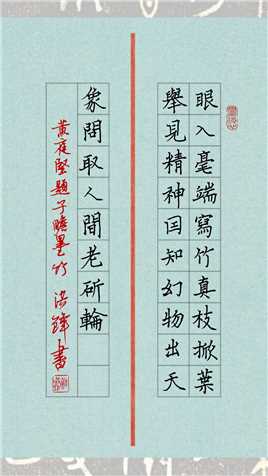 眼入毫端寫竹真枝掀葉
舉見精神囙知幻物出天
象問取人間老斫輪
黃庭堅題子瞻墨竹 書